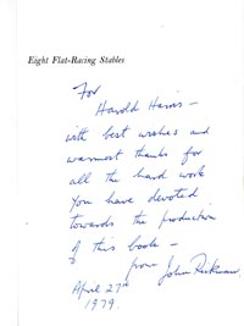 Eight Flat-Racing Stables
For
Harold Harris –
with best wishes and
warmest thanks for
all the hard work
you have devoted
towards the production
of this book –
from John Rickman.
April 27th
1979.